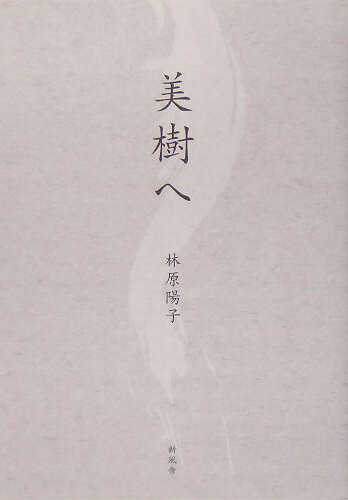 美樹へ
林原陽子
新風舎